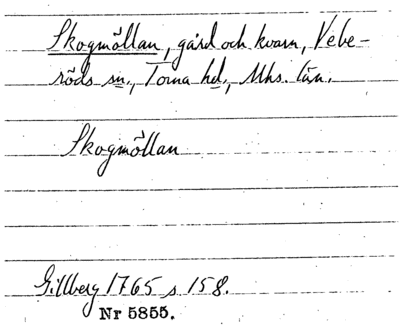 Skogmöllan, gård och kvarn, Vebe-
röds sn., Torna hd., Mhs. län.
Skogmöllan
Gillberg 1765 s 158.
Nr 5855.